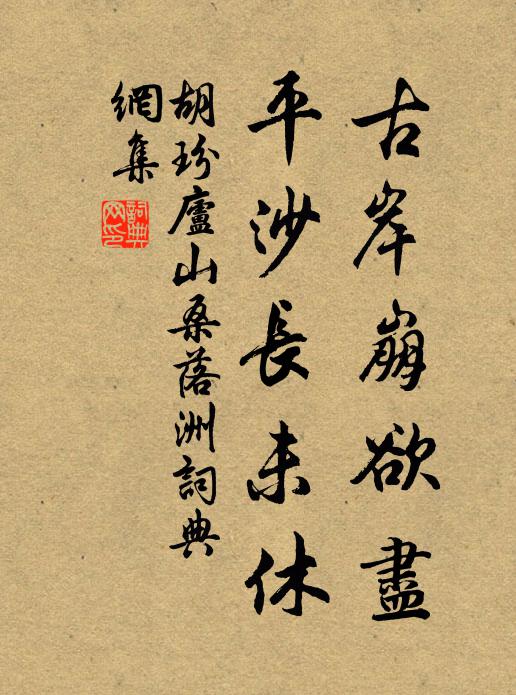 古岸崩欲盡
平沙長未休
胡玢廬山桑落洲詞典
網集
詞典
网印